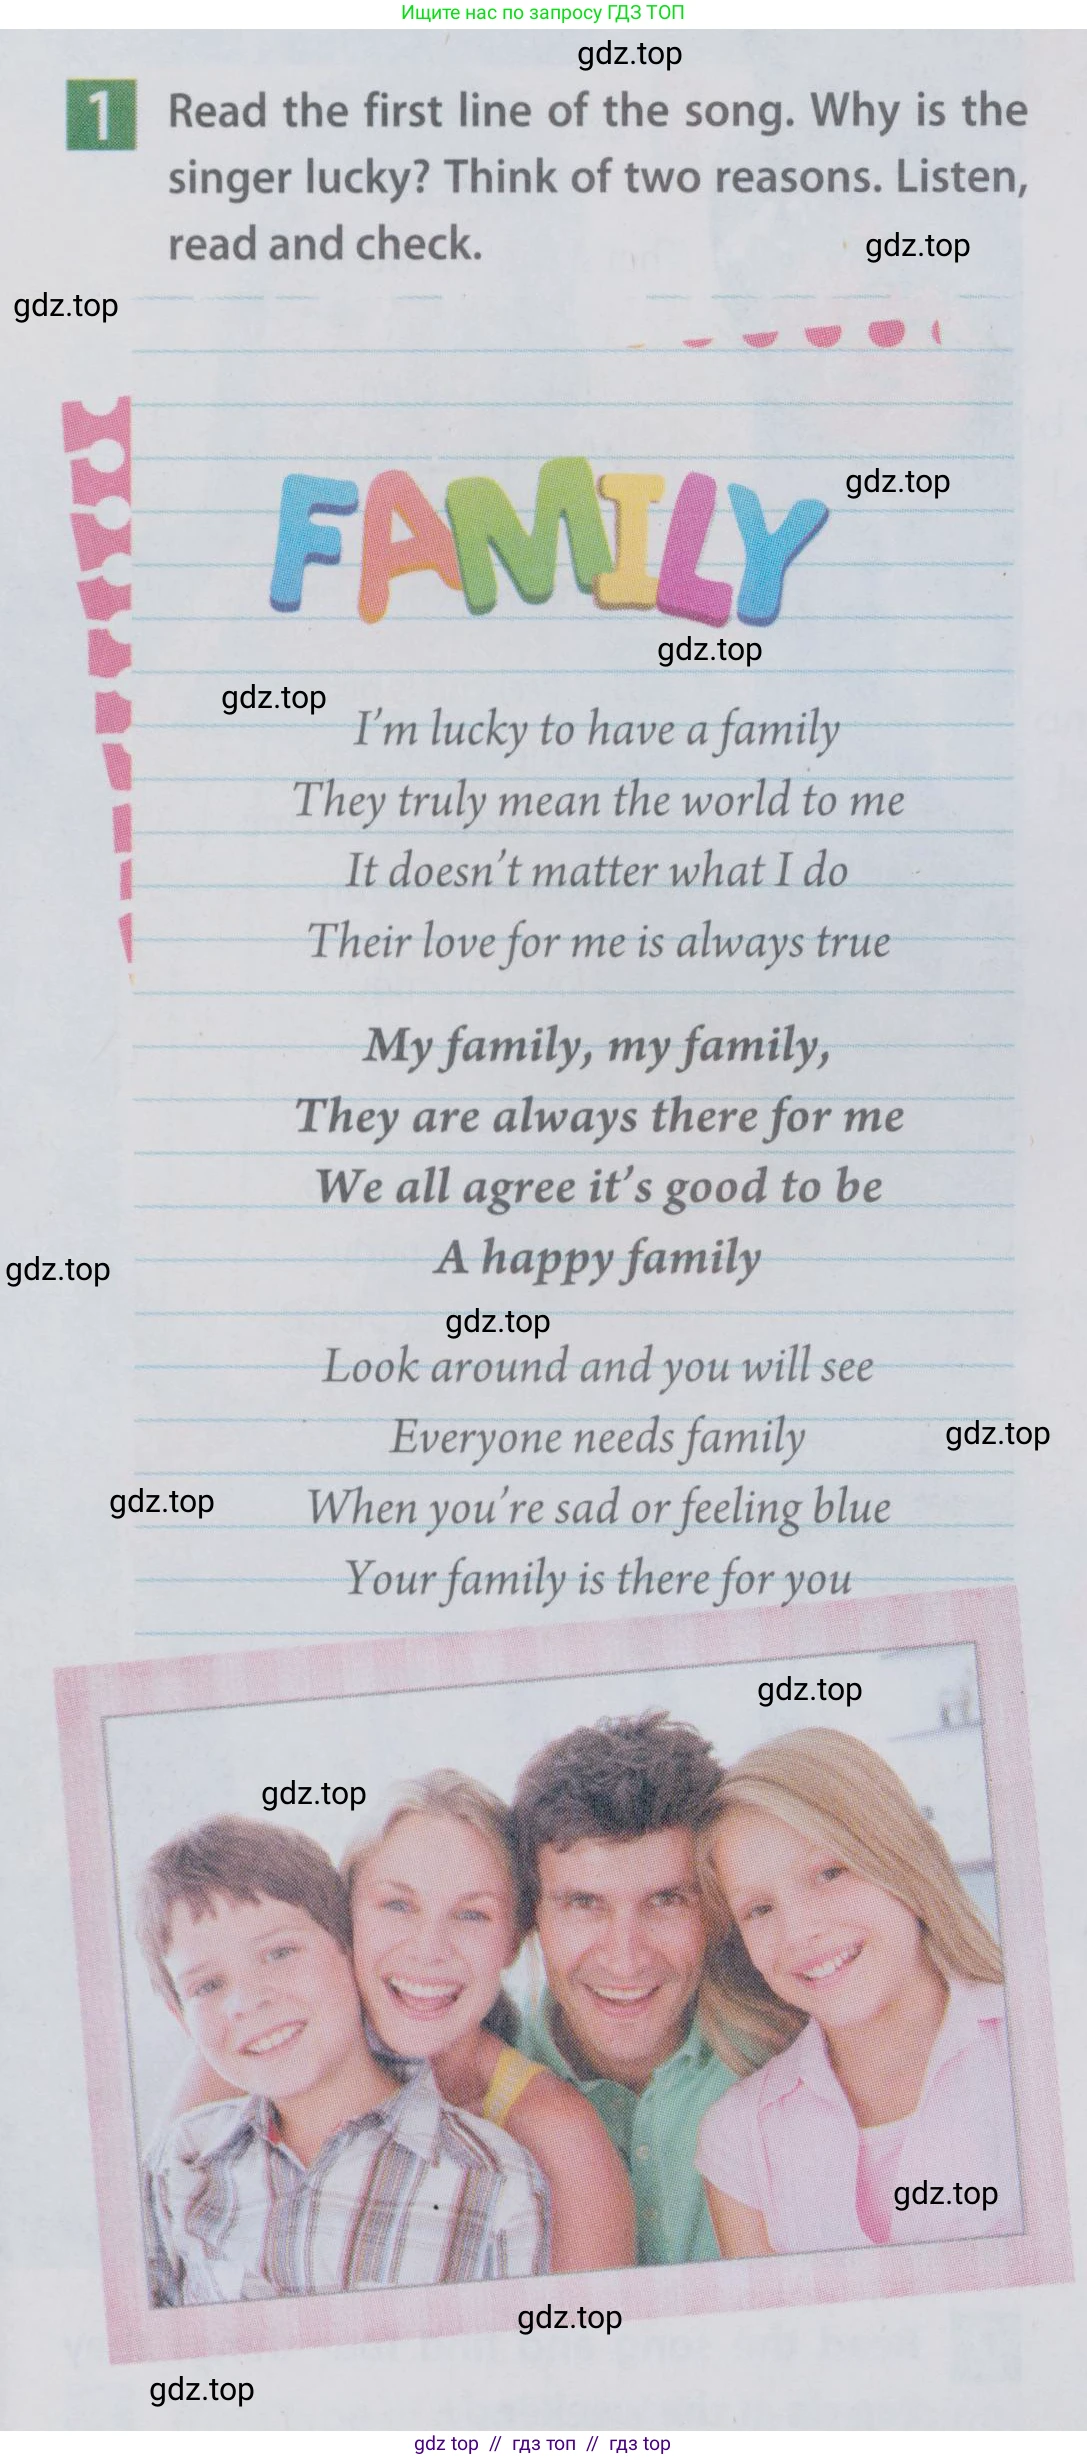 Ищите нас по запросу ГДЗ ТОП
gdz.top
1 Read the first line of the song. Why is the
singer lucky? Think of two reasons. Listen,
read and check.
gdz.top
gdz.top
FAMILY
gdz.top
gdz.top
gdz.top
I'm lucky to have a family
They truly mean the world to me
It doesn't matter what I do
Their love for me is always true
My family, my family,
They are always there for me
We all agree it's good to be
A happy family
gdz.top
gdz.top
Look around and you will see
Everyone needs family
gdz.top
When you're sad or feeling blue
gdz.top
Your family is there for you
gdz.top
gdz.top
gdz.top
gdz.top
gdz.top
gdz top // гдз топ // гдз top